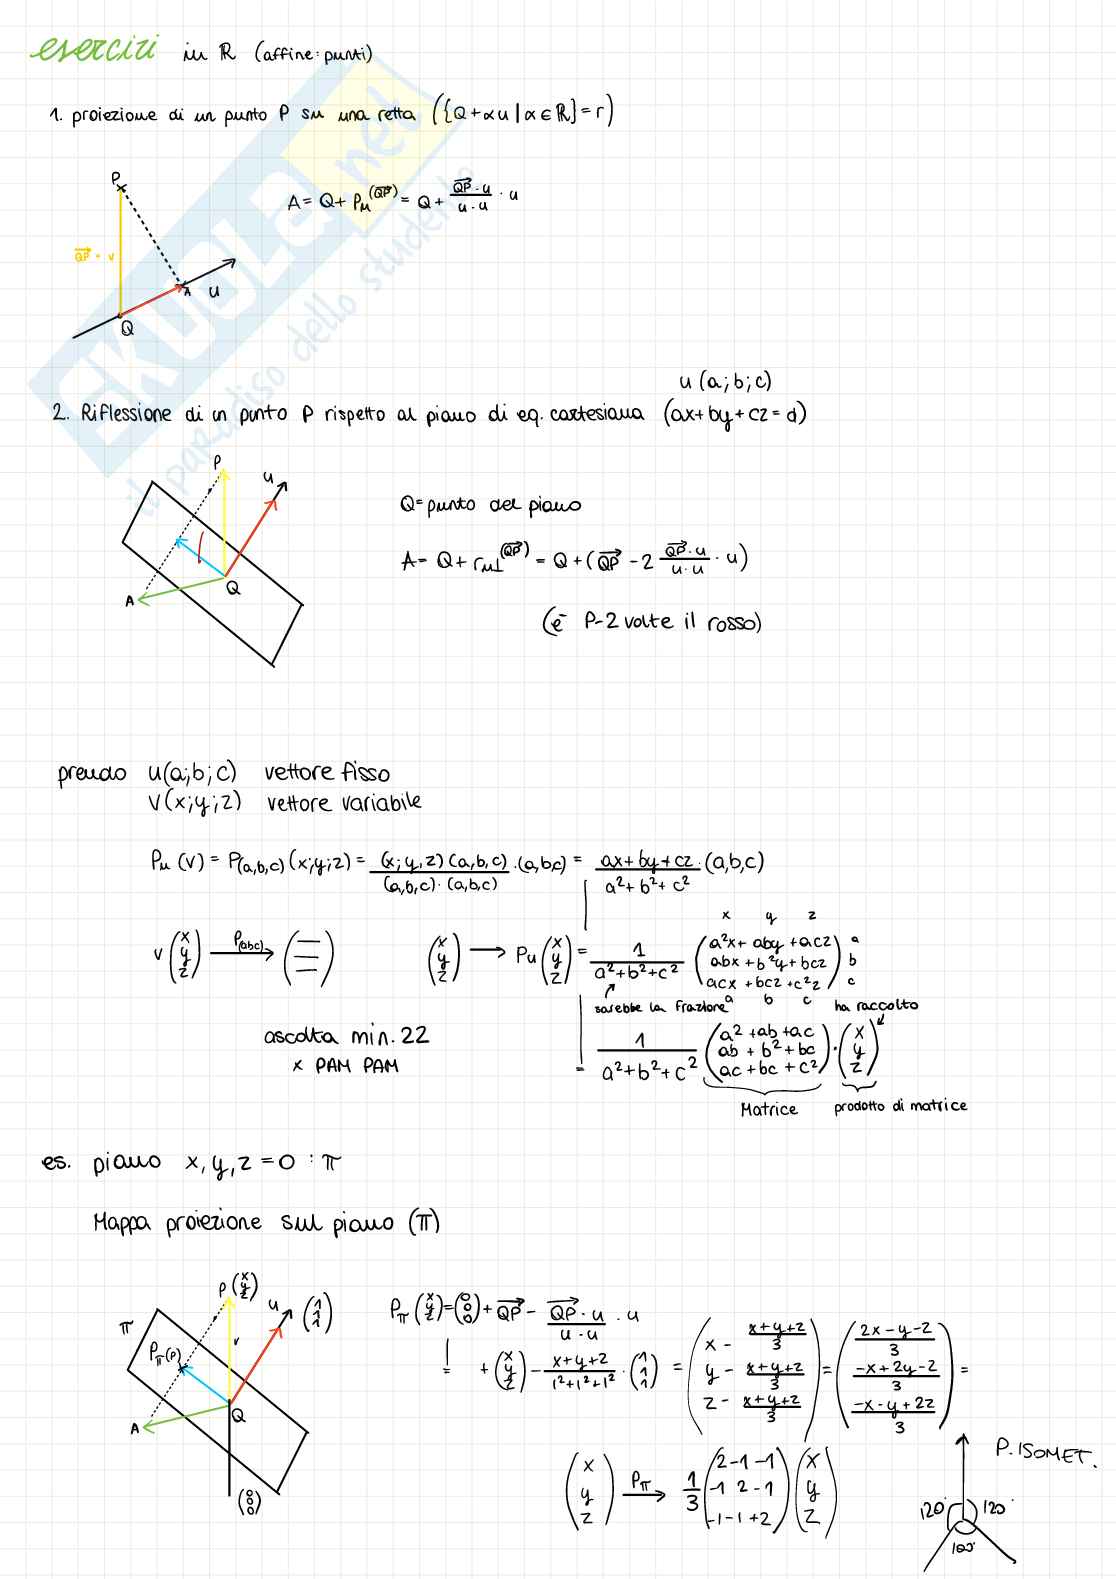 esercizi in ℝ (affine: punti)
1. proiezione di un punto P su una retta ({Q+αu | α∈ℝ}=r)
P
A = Q + Pu(QP) = Q + QP·u / u·u · u
QP = v
A
u
Q
u (a; b; c)
2. Riflessione di un punto P rispetto al piano di eq. cartesiana (ax+by+cz=d)
P
u
Q=punto del piano
A= Q + ru⊥(QP) = Q + (QP - 2 QP·u / u·u · u)
Q
A
(è P-2 volte il rosso)
prendo u(a;b;c) vettore fisso
v(x;y;z) vettore variabile
Pu (v) = P(a,b,c) (x;y;z) = (x;y,z)(a,b,c) / (a,b,c)·(a,b,c) · (a,b,c) = ax+by+cz / a²+b²+c² · (a,b,c)
x y z
v (x y z) P(abc) → ( )
(x y z) → Pu (x y z) = 1 / a²+b²+c² (a²x+aby+acz abx+b²y+bcz acx+bcz+c²z) a b c
sarebbe la frazione a b c ha raccolto
ascolta min. 22
x PAM PAM
= 1 / a²+b²+c² (a²+ab+ac ab+b²+bc ac+bc+c²) · (x y z)
Matrice prodotto di matrice
es. piano x,y,z=0 : π
Mappa proiezione sul piano (π)
P (x y z)
u (1 1 1)
π
v
Pπ(P)
Q
A
(0 0 0)
Pπ (x y z) = (0 0 0) + QP - QP·u / u·u · u
= + (x y z) - x+y+z / 1²+1²+1² · (1 1 1) = (x - x+y+z / 3 y - x+y+z / 3 z - x+y+z / 3) = (2x-y-z / 3 -x+2y-z / 3 -x-y+2z / 3) =
(x y z) Pπ → 1/3 (2-1-1 -1 2-1 -1-1+2) (x y z)
P. ISOMET.
120° 120°
SKUOLA.net
il paradiso dello studente